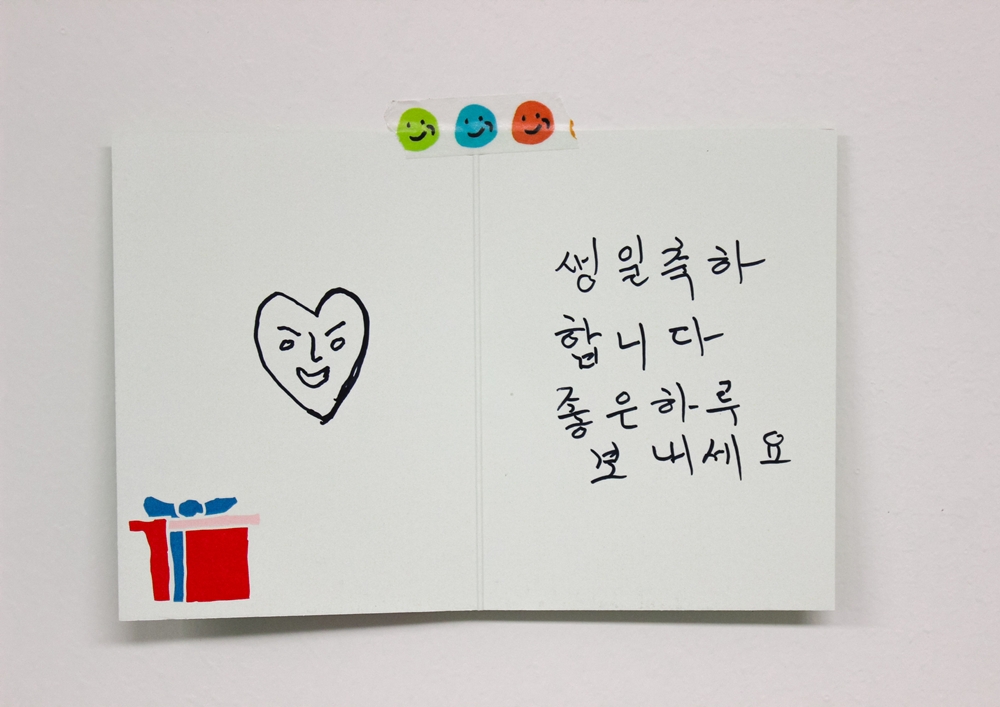 생일축하
합니다
좋은하루
보내세요